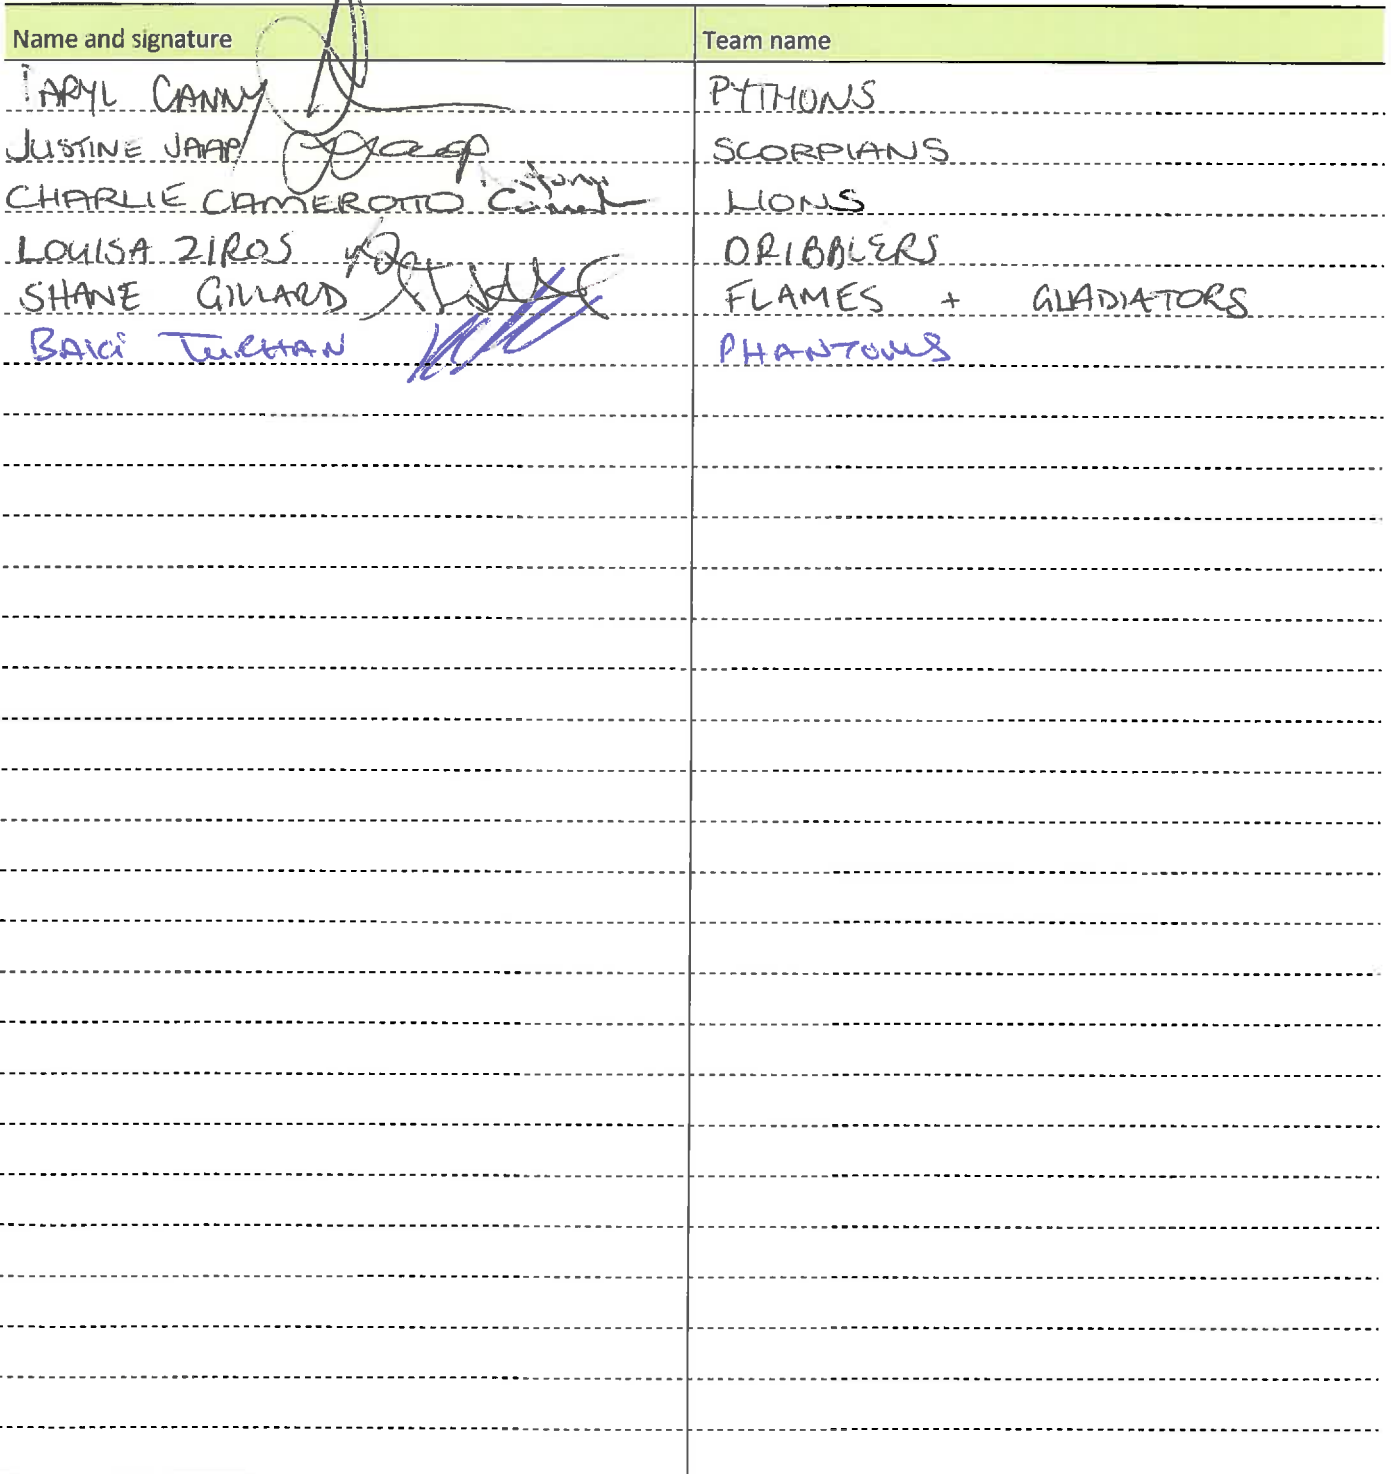 Name and signature Team name
TARYL CANNY PYTHONS
JUSTINE JAAP Jaap SCORPIANS
CHARLIE CAMEROTTO LIONS
LOUISA ZIROS DRIBBLERS
SHANE GILLARD FLAMES + GLADIATORS
BAKI TURHAN PHANTOMS